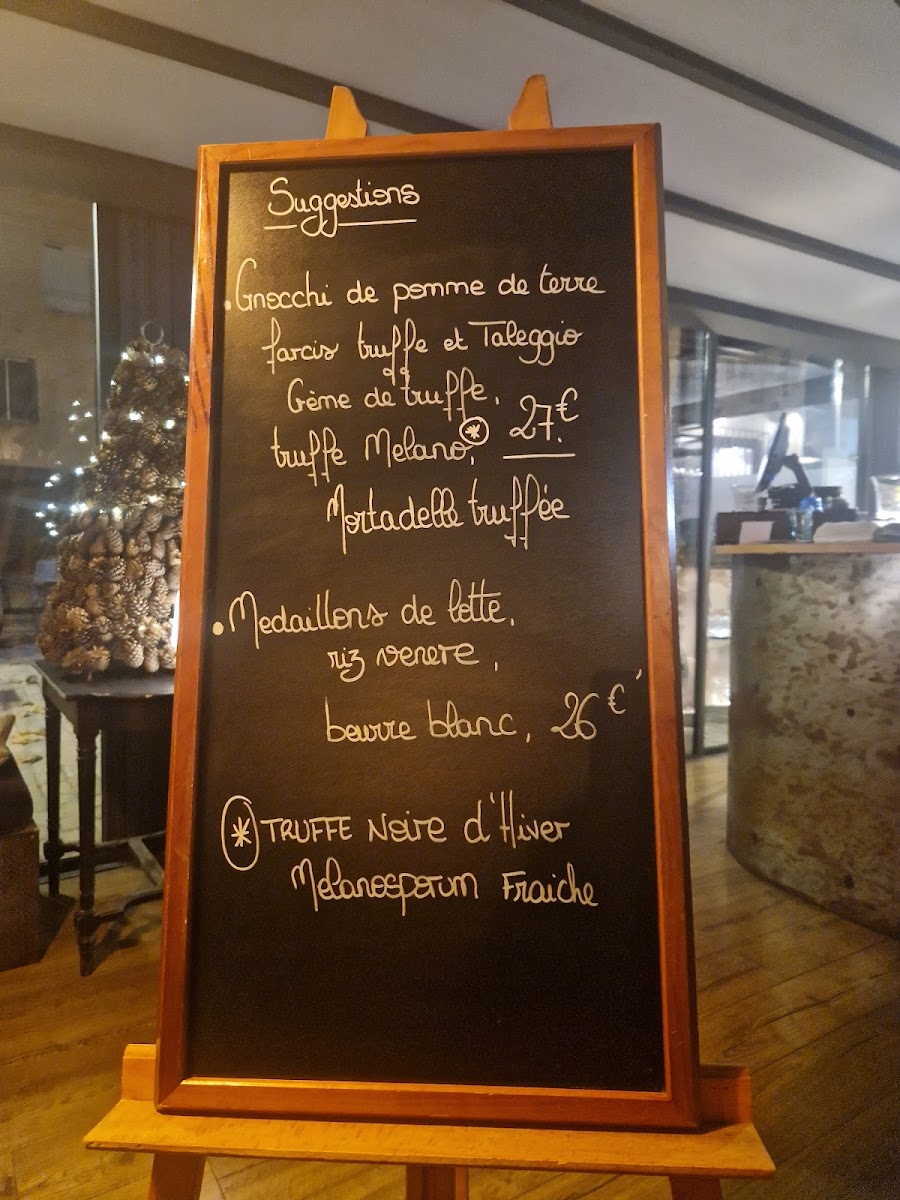 Suggestions
.Gnocchi de pomme de terre
farcis truffe et Taleggio
Crème de truffe,
truffe Melano, * 27.€
Mortadelle truffée
• Medaillons de lotte,
riz venere,
beurre blanc, 26€
* TRUFFE Noire d'Hiver
Melanosporum Fraiche